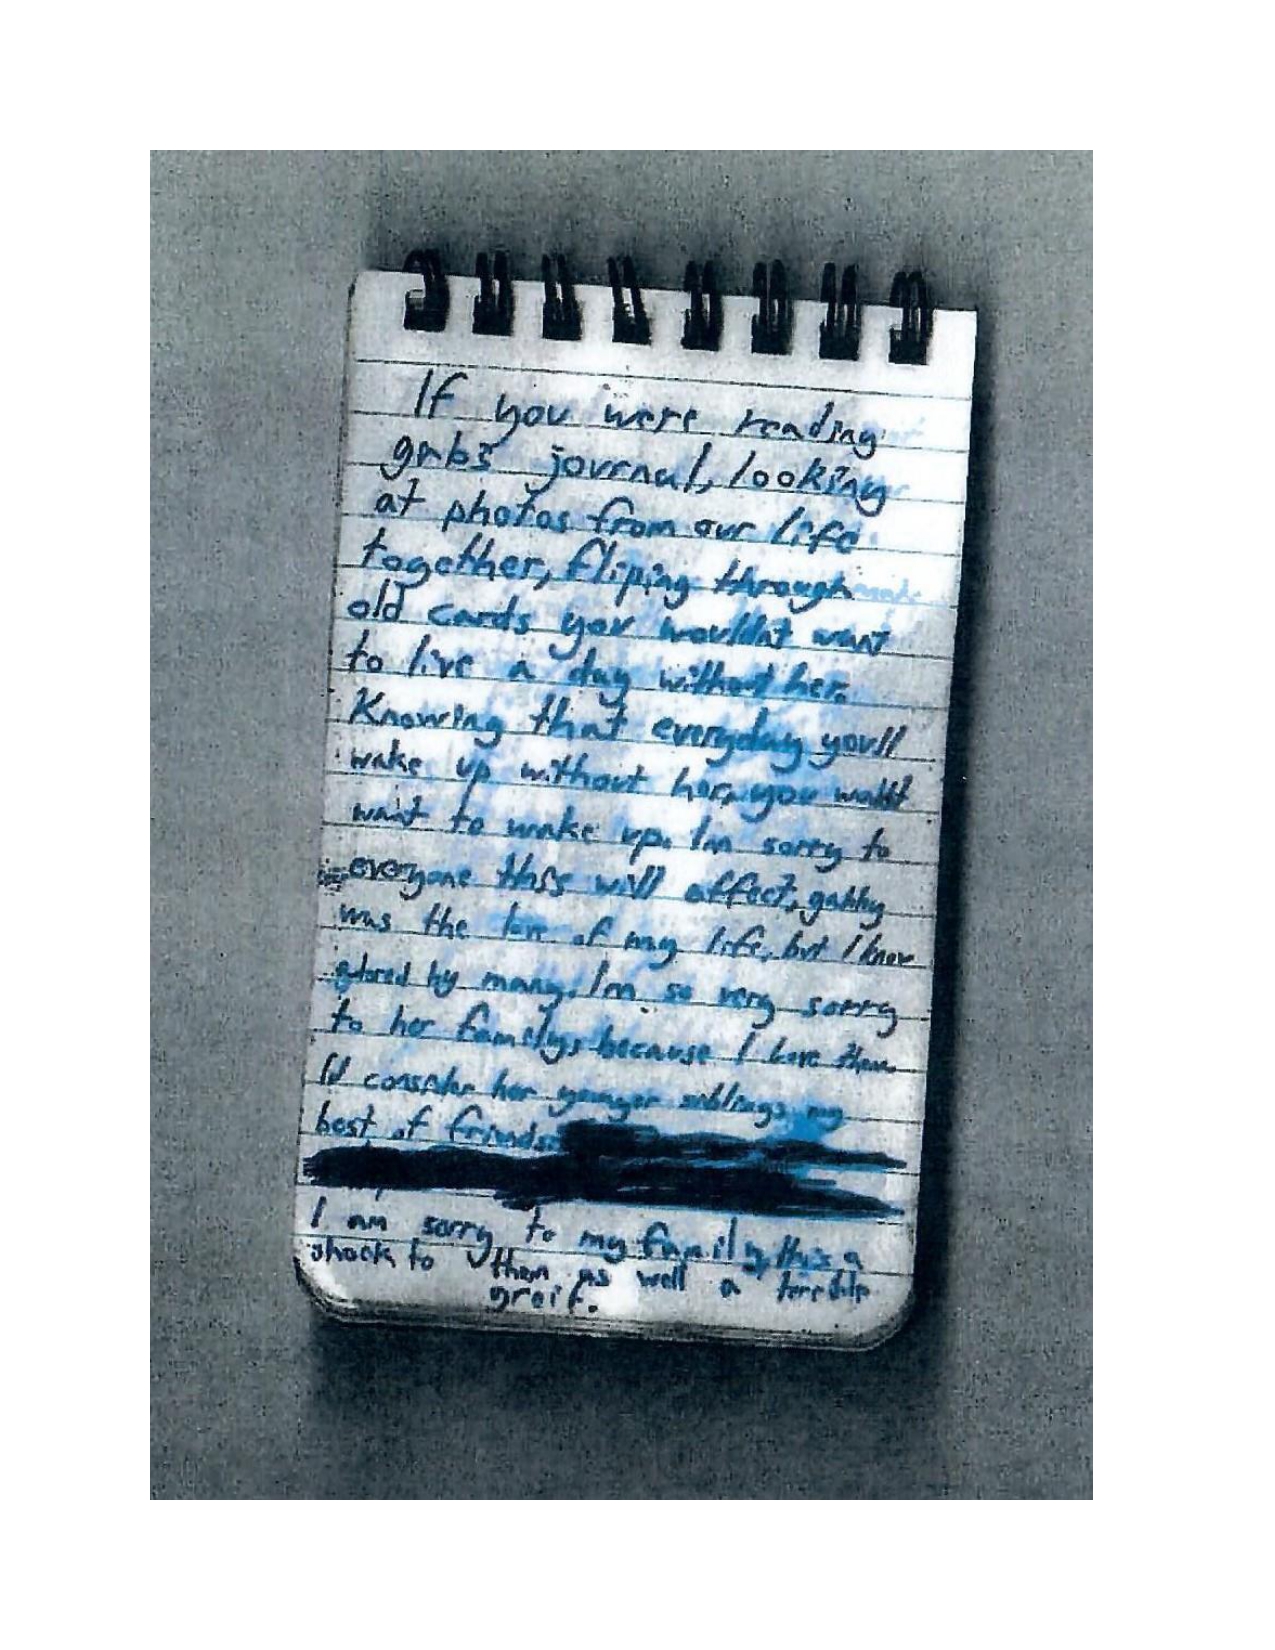 If you were reading
gabs journal, looking
at photos from our life
together, fliping through
old cards you wouldnt want
to live a day without her.
Knowing that everyday you'll
wake up without her, you wouldnt
want to wake up. I'm sorry to
everyone this will affect, gabby
was the love of my life, but I know
adored by many. I'm so very sorry
to her family, because I love them.
I'd consider her younger siblings my
best of friends.
I am sorry to my family, this is a
shock to them as well a terrible
greif.